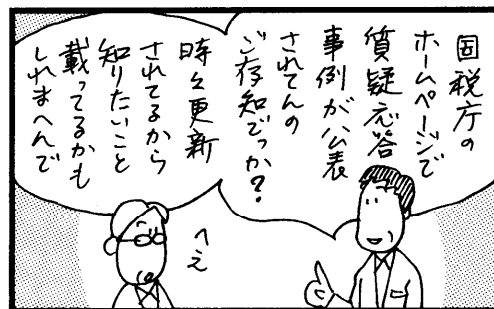 国税庁の
ホームページで
質疑応答
事例が公表
されてんの
ご存知でっか？
時々更新
されてるから
知りたいこと
載ってるかも
しれまへんで
へえ